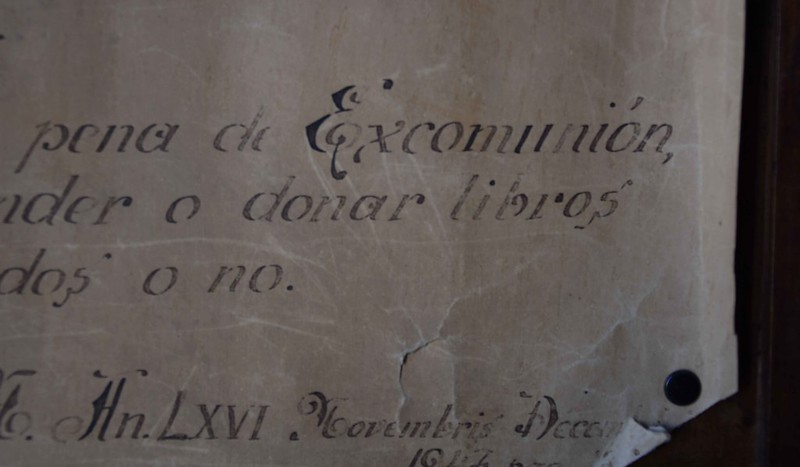 pena de Excomunión,
nder o donar libros
dos o no.
An. LXVI Novembris